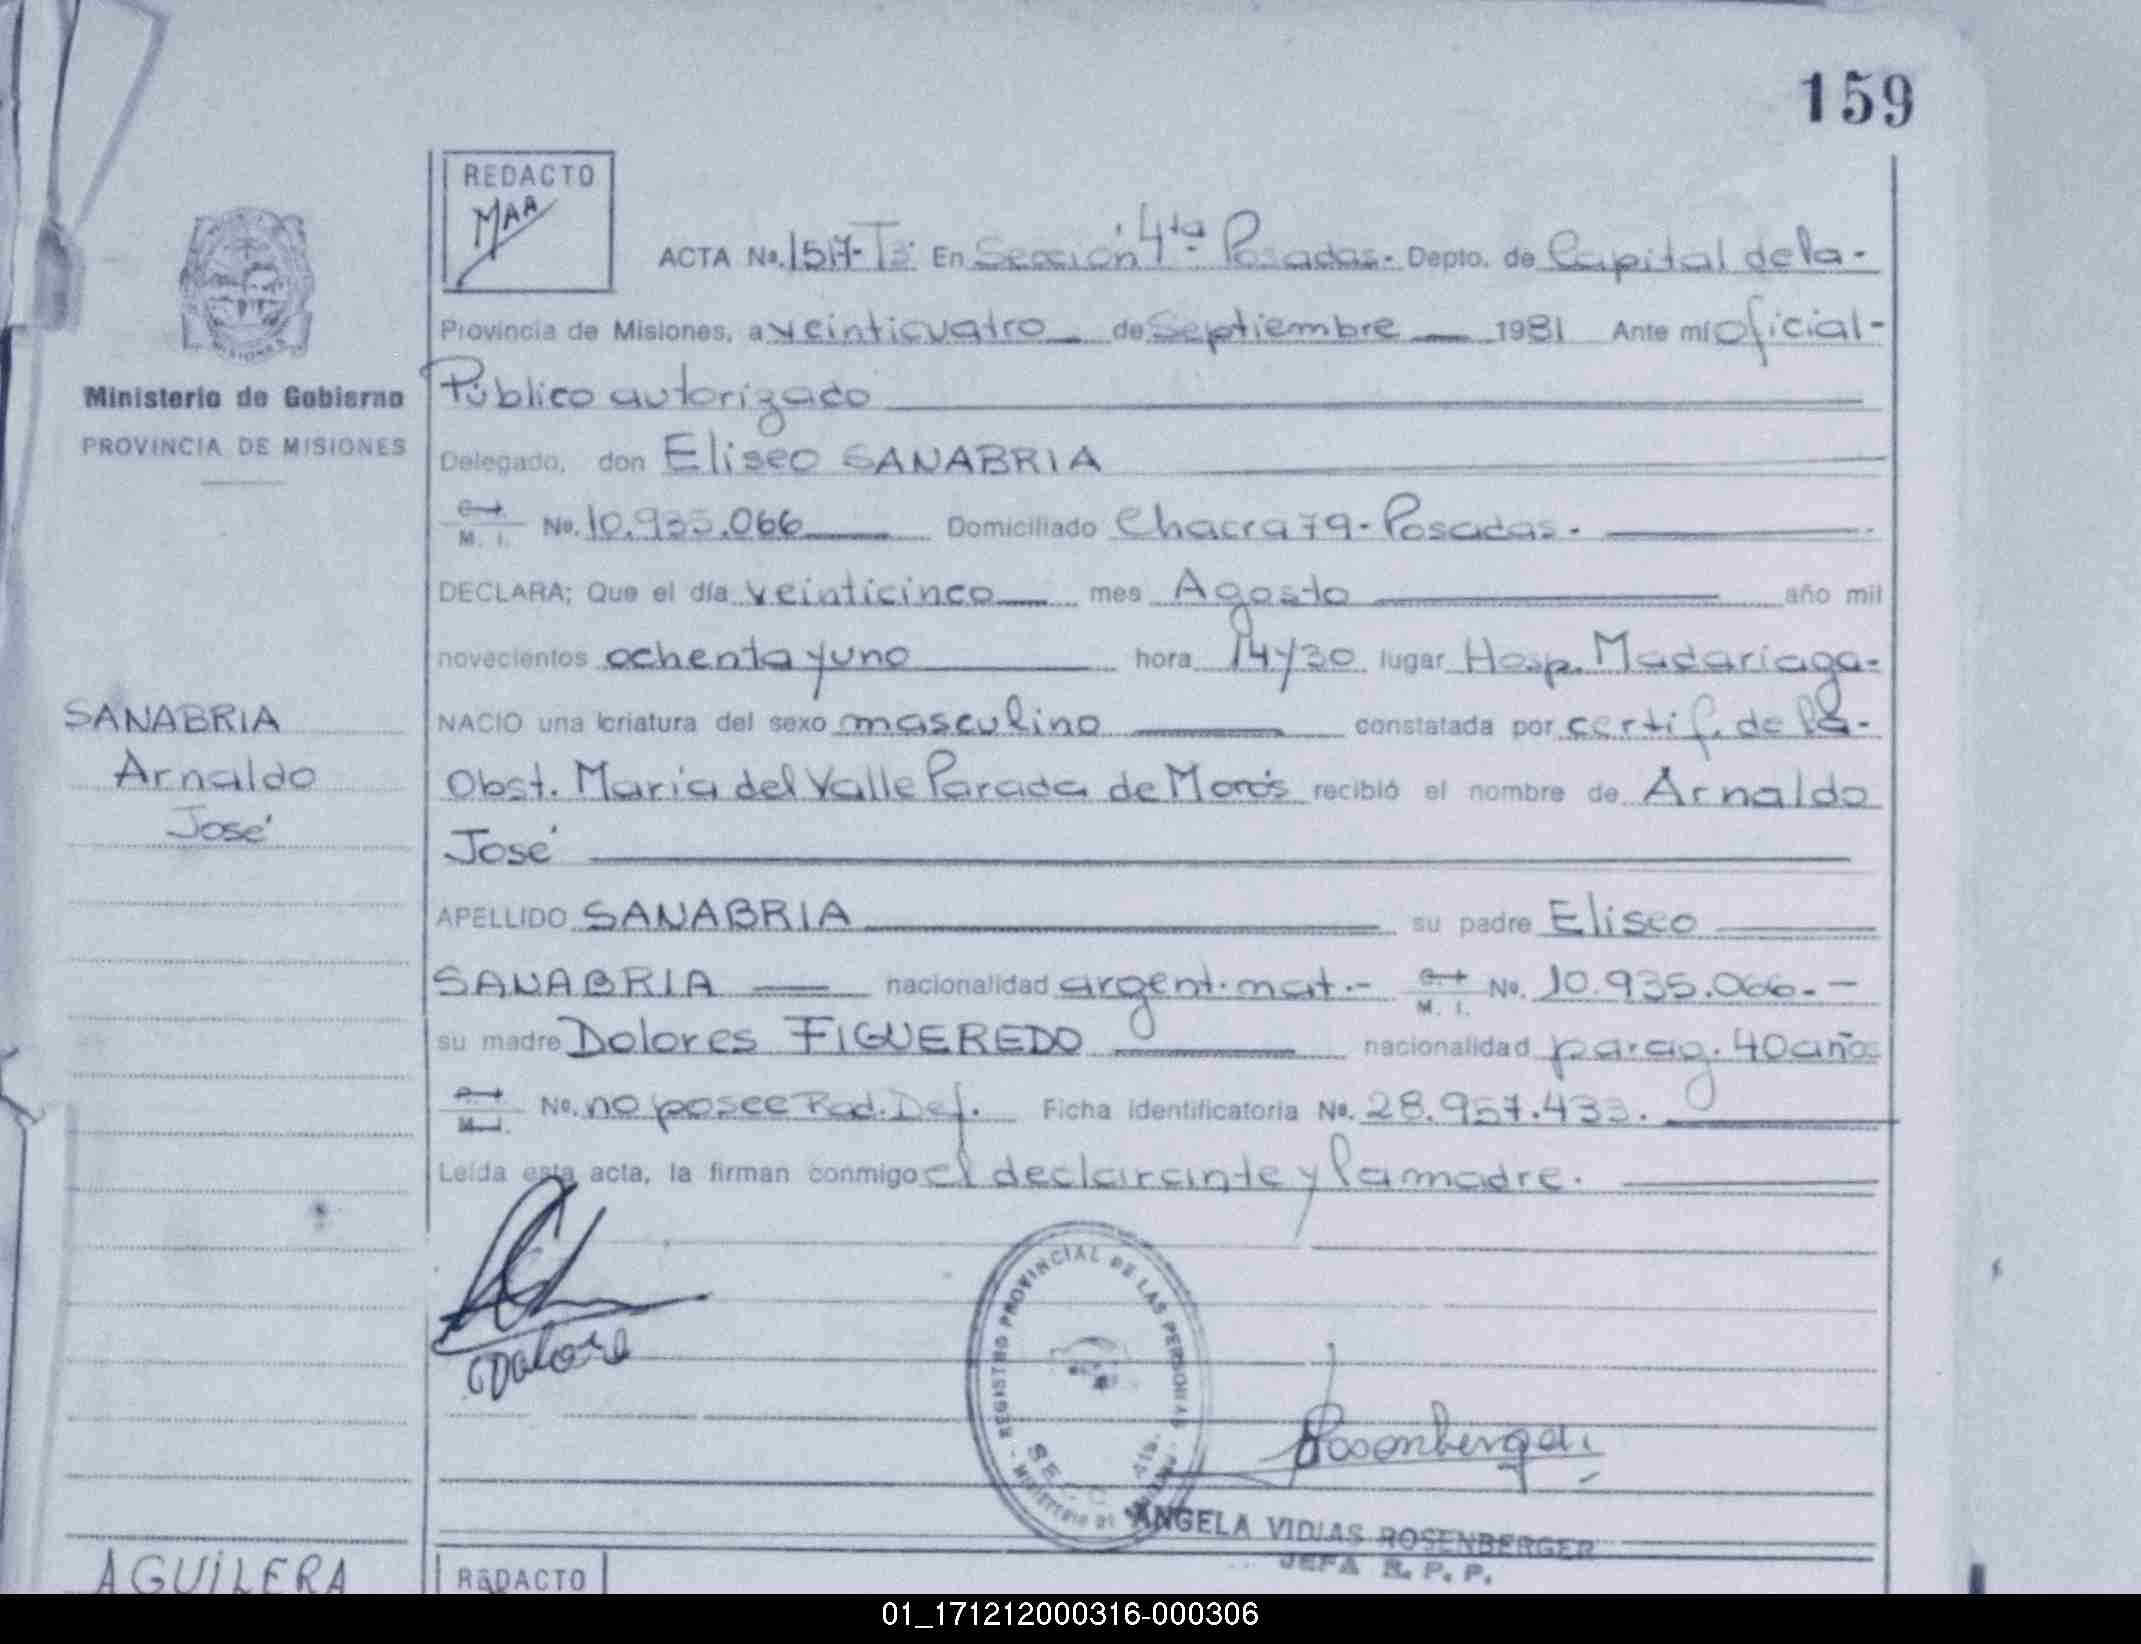 159
REDACTO
MAA
ACTA No. 1517-T3: En Sección 4ta Posadas.- Depto. de Capital de la-
Provincia de Misiones, a veinticuatro de Septiembre 1981 Ante mí oficial-
Ministerio de Gobierno
Público autorizado
PROVINCIA DE MISIONES
Delegado, don Eliseo SANABRIA
M. I. No. 10.935.066 Domiciliado Chacra 79-Posadas.-
DECLARA; Que el día veinticinco mes Agosto año mil
novecientos ochenta y uno hora 14y30 lugar Hosp. Madariaga-
SANABRIA
Arnaldo
José
NACIO una criatura del sexo masculino constatada por certif. de la-
Obst. Maria del Valle Parada de recibió el nombre de Arnaldo
José
APELLIDO SANABRIA su padre Eliseo
SANABRIA nacionalidad argent. nat.- M. I. No. 10.935.066.-
su madre Dolores FIGUEREDO nacionalidad parag. 40 años
M. I. No. no posee Rad. Def. Ficha identificatoria No. 28.957.433.
Leída esta acta, la firman conmigo el declarante y la madre.
REGISTRO PROVINCIAL DE LAS PERSONAS
Dolore
ANGELA VIDIAS ROSENBERGER
JEFA R. P. P.
AGUILERA
REDACTO
01_171212000316-000306